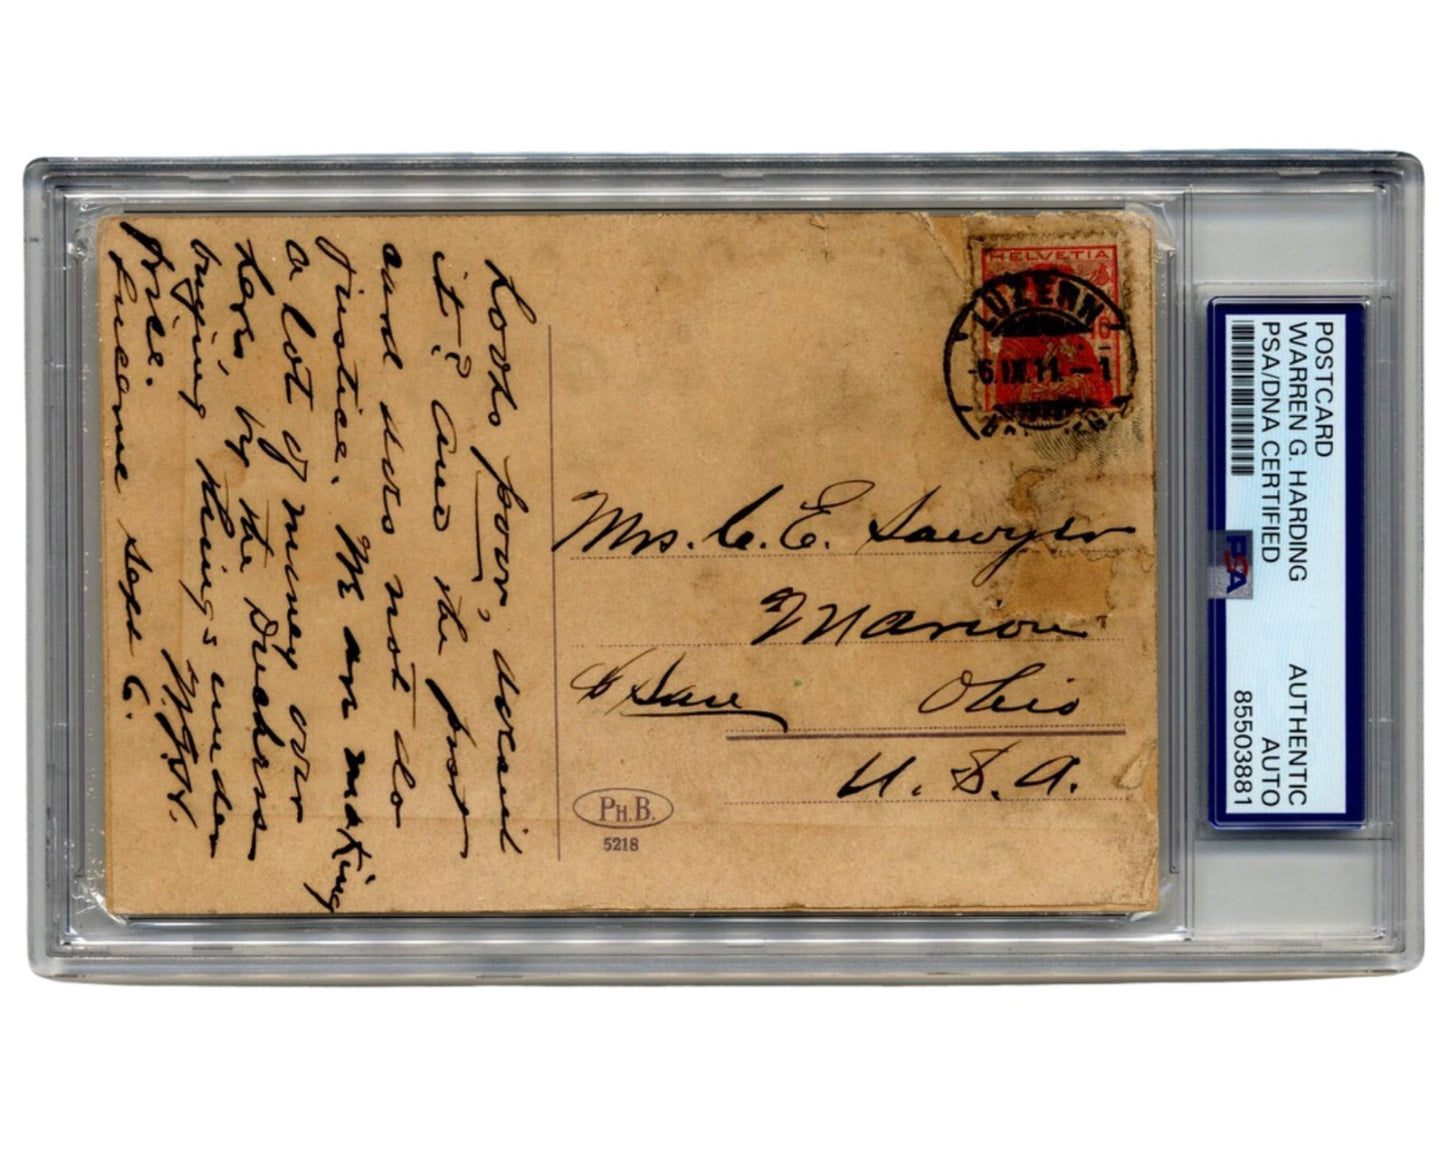 Looks poor, doesn't
it? And the post
card does not do
justice. We are making
a lot of money over
here, by the Duahrss
buying things under
price.
W.G.H.
Lucerne Sept 6.
HELVETIA
LUZERN
-6.IX.11.-1
Mrs. C. E. Sawyer
Marion
Ohio
U. S. A.
Ph.B.
5218
POSTCARD
WARREN G. HARDING
PSA/DNA CERTIFIED
AUTHENTIC
AUTO
85503881
PSA